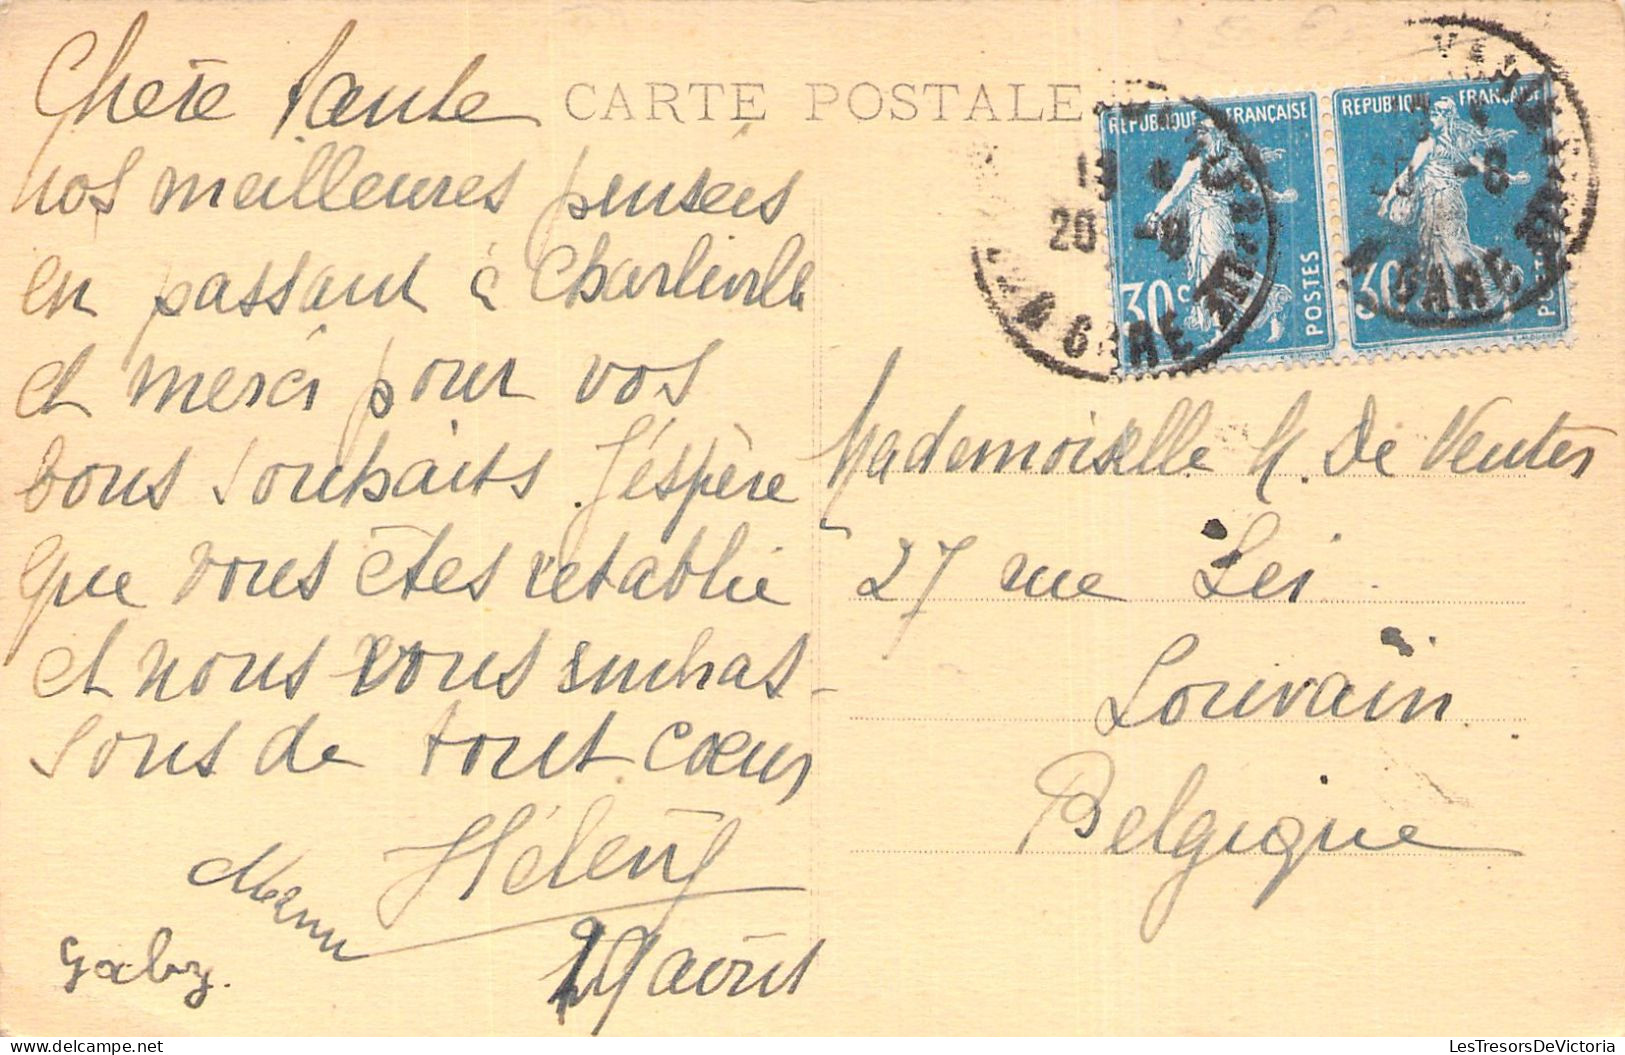 CARTE POSTALE
Chère tante
nos meilleures pensées
en passant à Charleville
et merci pour vos
bons souhaits. J'éspère
que vous êtes rétablie
et nous vous embras-
sons de tout cœur
Hélène
Gaby.
19 août
REPUBLIQUE FRANÇAISE
30 c
POSTES
REPUBLIQUE FRANÇAISE
30
POSTES
20 -8
GARE
-8
GARE
Mademoiselle M. De Venter
27 rue Lei
Louvain
Belgique
LesTresorsDeVictoria